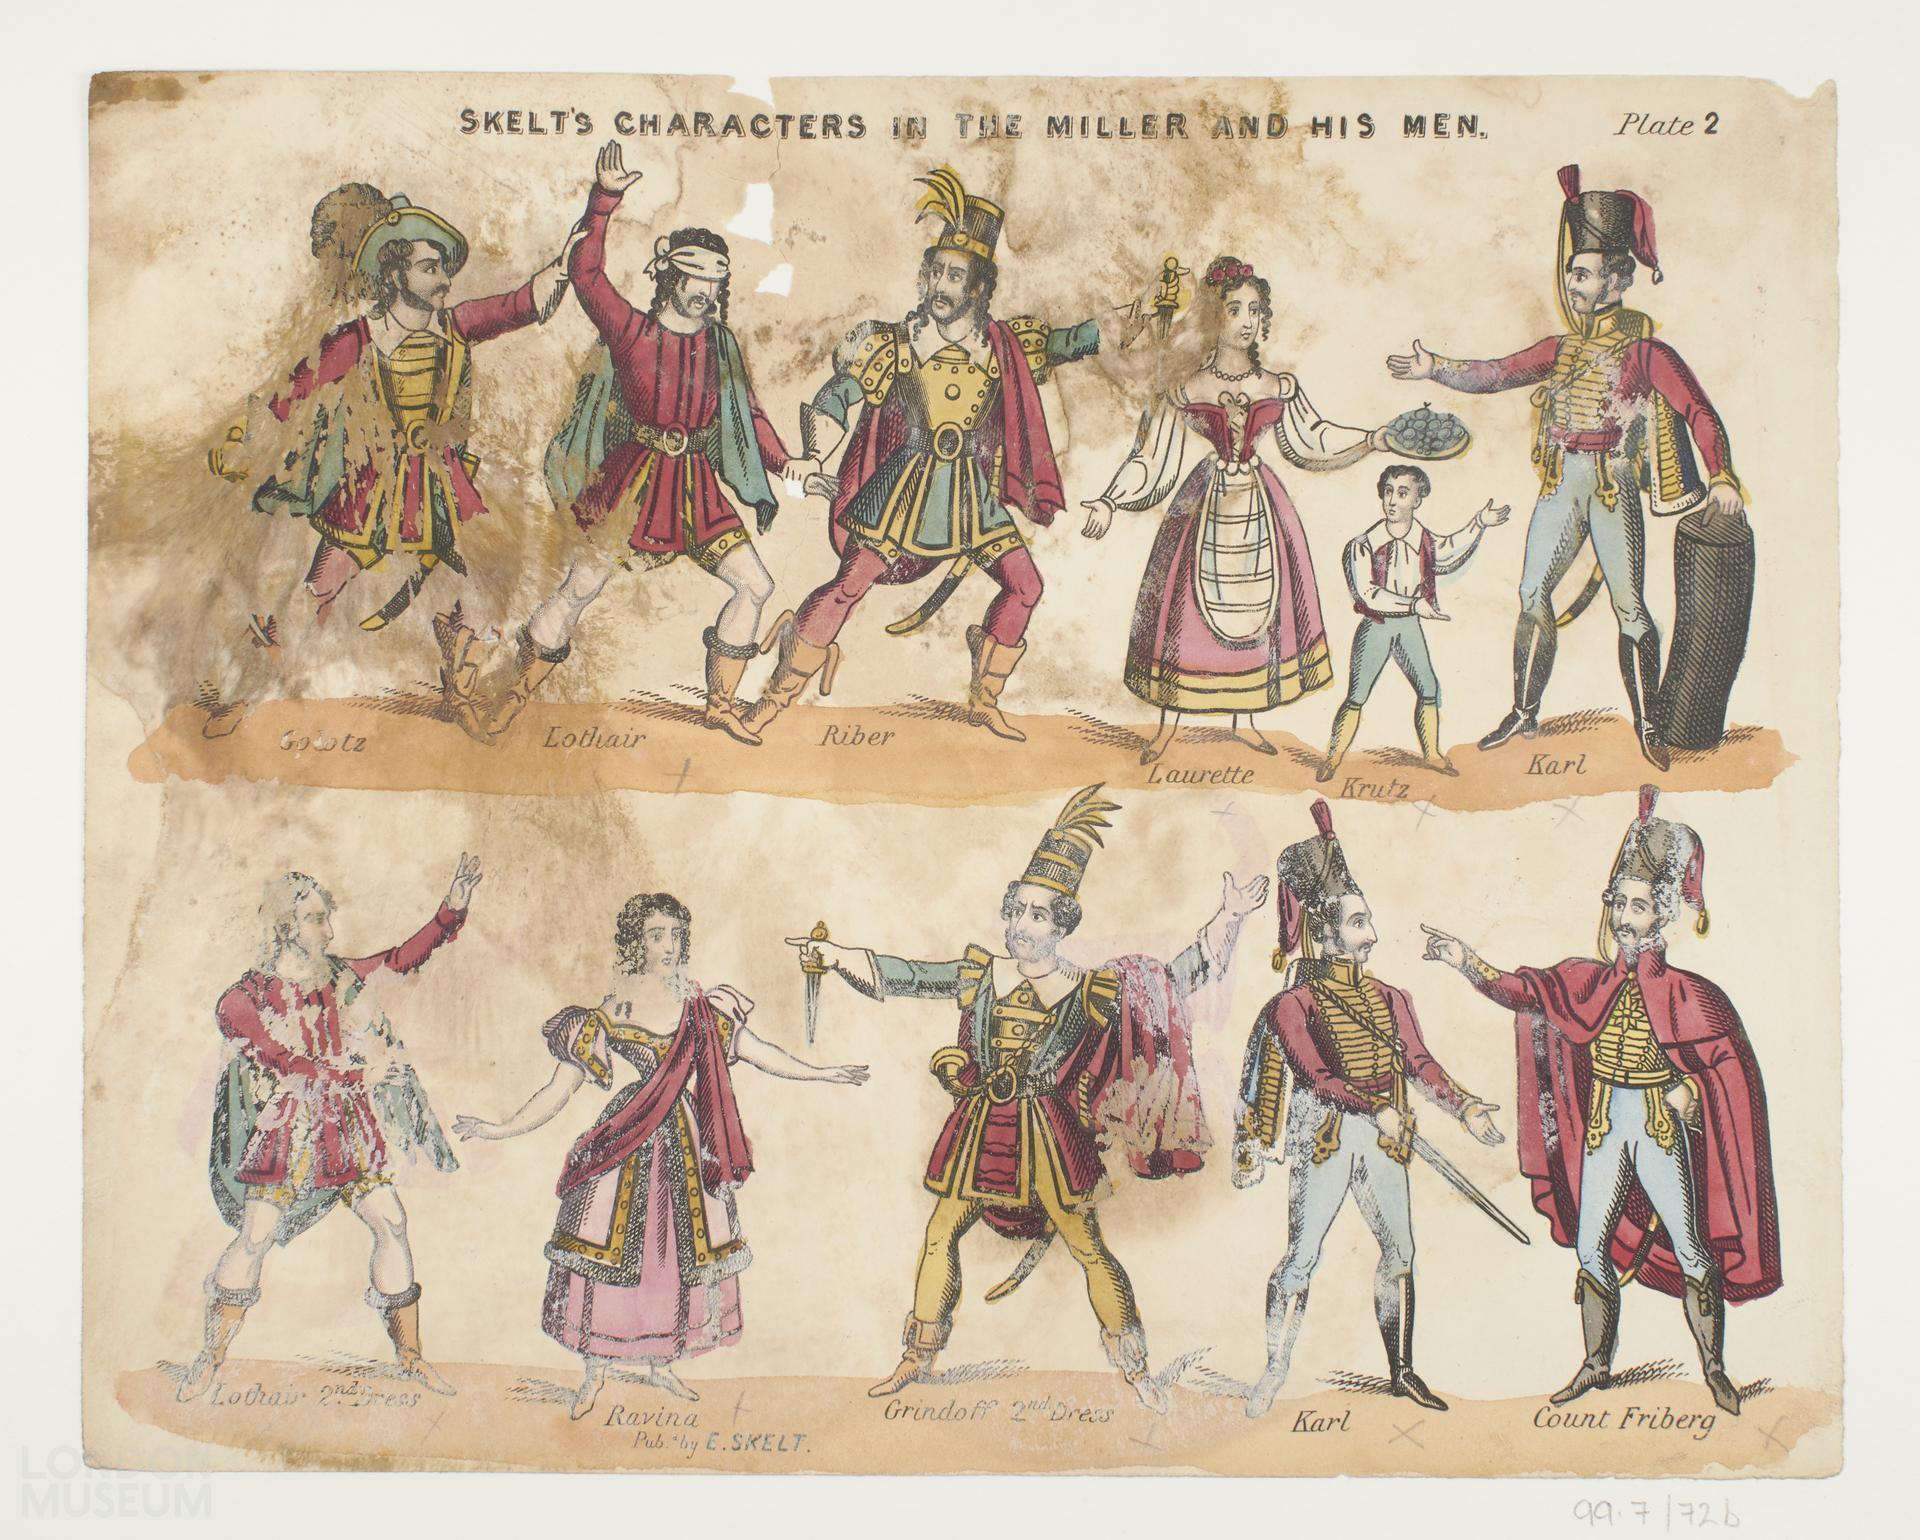 SKELT'S CHARACTERS IN THE MILLER AND HIS MEN.
Plate 2
Golotz
Lothair
Riber
Laurette
Krutz
Karl
Lothair 2nd Dress
Ravina
Pub. by E. SKELT.
Grindoff 2nd Dress
Karl
Count Friberg
LONDON
MUSEUM
99.7/72b